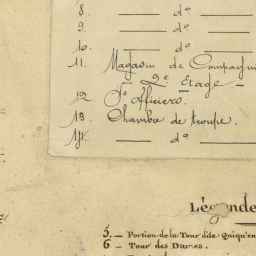 8. — d° —
9. — d° —
10. — d° —
11. Magasin de Compagni
— 2e Etage —
12. Ss Officiers.
13. Chambre de troupe.
14. — d° —
Légende
5. — Portion de la Tour dite Quiqu'en
6 — Tour des Dames.